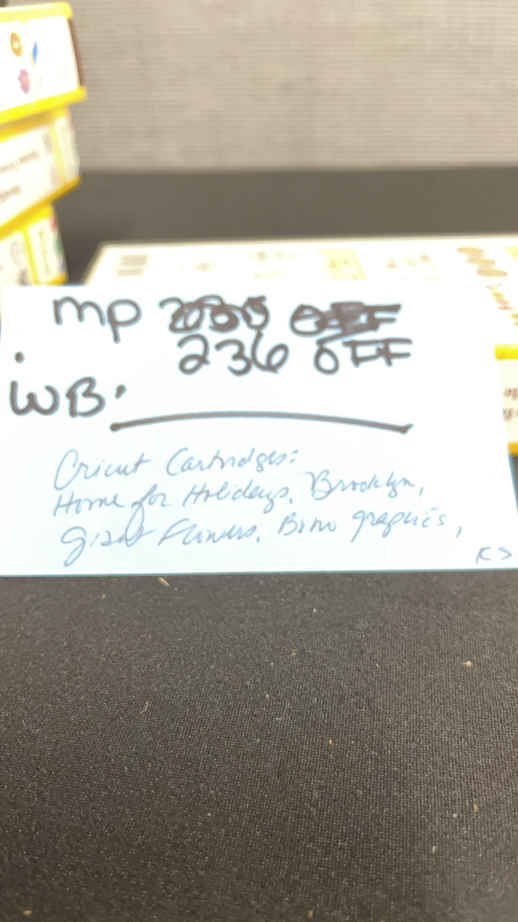 mp
236 OFF
WB:
Cricut Cartridges:
Home for Holidays, Brooklyn,
Giant Flowers, Bomo graphics,